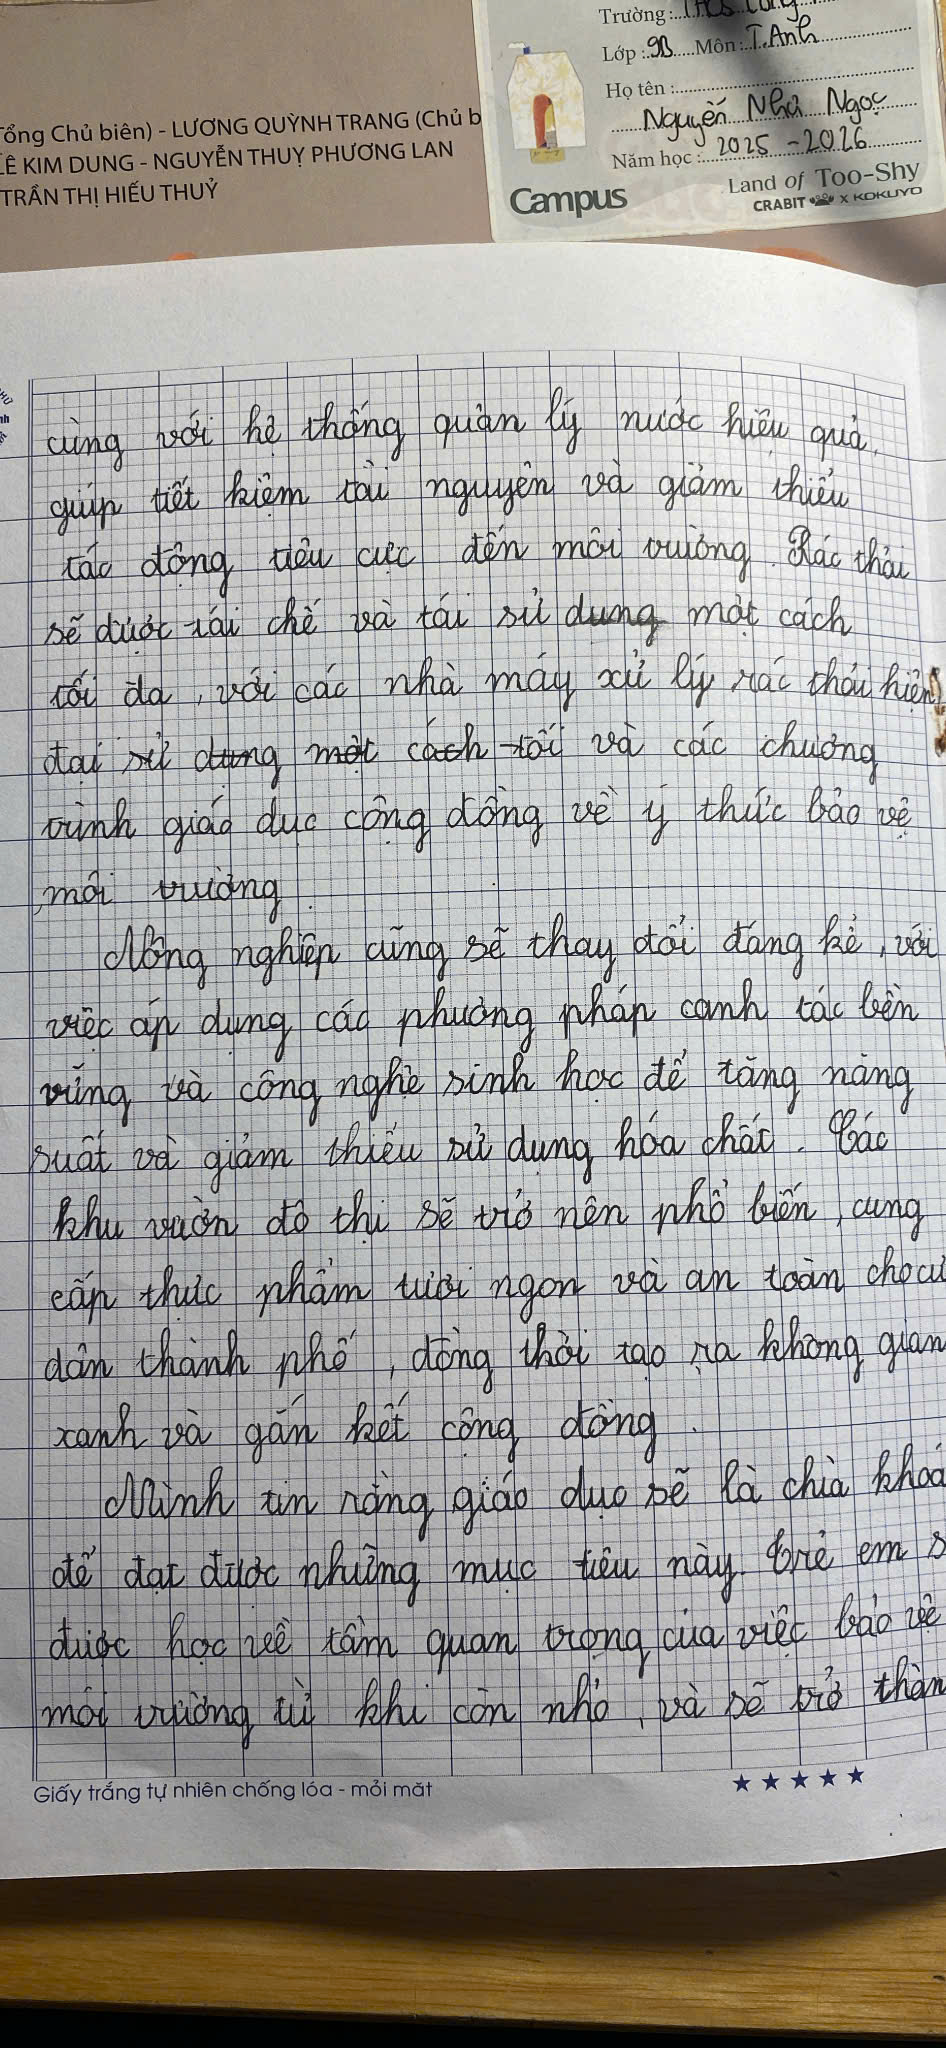 Trường: THCS Long
Lớp: 9B Môn: T.Anh
Họ tên:
Nguyễn Như Ngọc
Năm học: 2025 - 2026
Campus
Land of Too-Shy
CRABIT X KOKUYO
Tổng Chủ biên) - LƯƠNG QUỲNH TRANG (Chủ b
LÊ KIM DUNG - NGUYỄN THUỴ PHƯƠNG LAN
TRẦN THỊ HIẾU THUỶ
cùng với hệ thống quản lý nước hiệu quả,
giúp tiết kiệm tài nguyên và giảm thiểu
tác động tiêu cực đến môi trường. Rác thải
sẽ được tái chế và tái sử dụng một cách
tối đa, với các nhà máy xử lý rác thải hiện
đại sử dụng một cách tối và các chương
trình giáo dục cộng đồng về ý thức bảo vệ
môi trường.
Nông nghiệp cũng sẽ thay đổi đáng kể, với
việc áp dụng các phương pháp canh tác bền
vững và công nghệ sinh học để tăng năng
suất và giảm thiểu sử dụng hóa chất. Các
khu vườn đô thị sẽ trở nên phổ biến, cung
cấp thực phẩm tươi ngon và an toàn cho cư
dân thành phố, đồng thời tạo ra không gian
xanh và gắn kết cộng đồng.
Mình tin rằng giáo dục sẽ là chìa khoá
để đạt được những mục tiêu này. Trẻ em s
được học về tầm quan trọng của việc bảo vệ
môi trường từ khi còn nhỏ, và sẽ trở thàn
Giấy trắng tự nhiên chống lóa - mỏi mắt